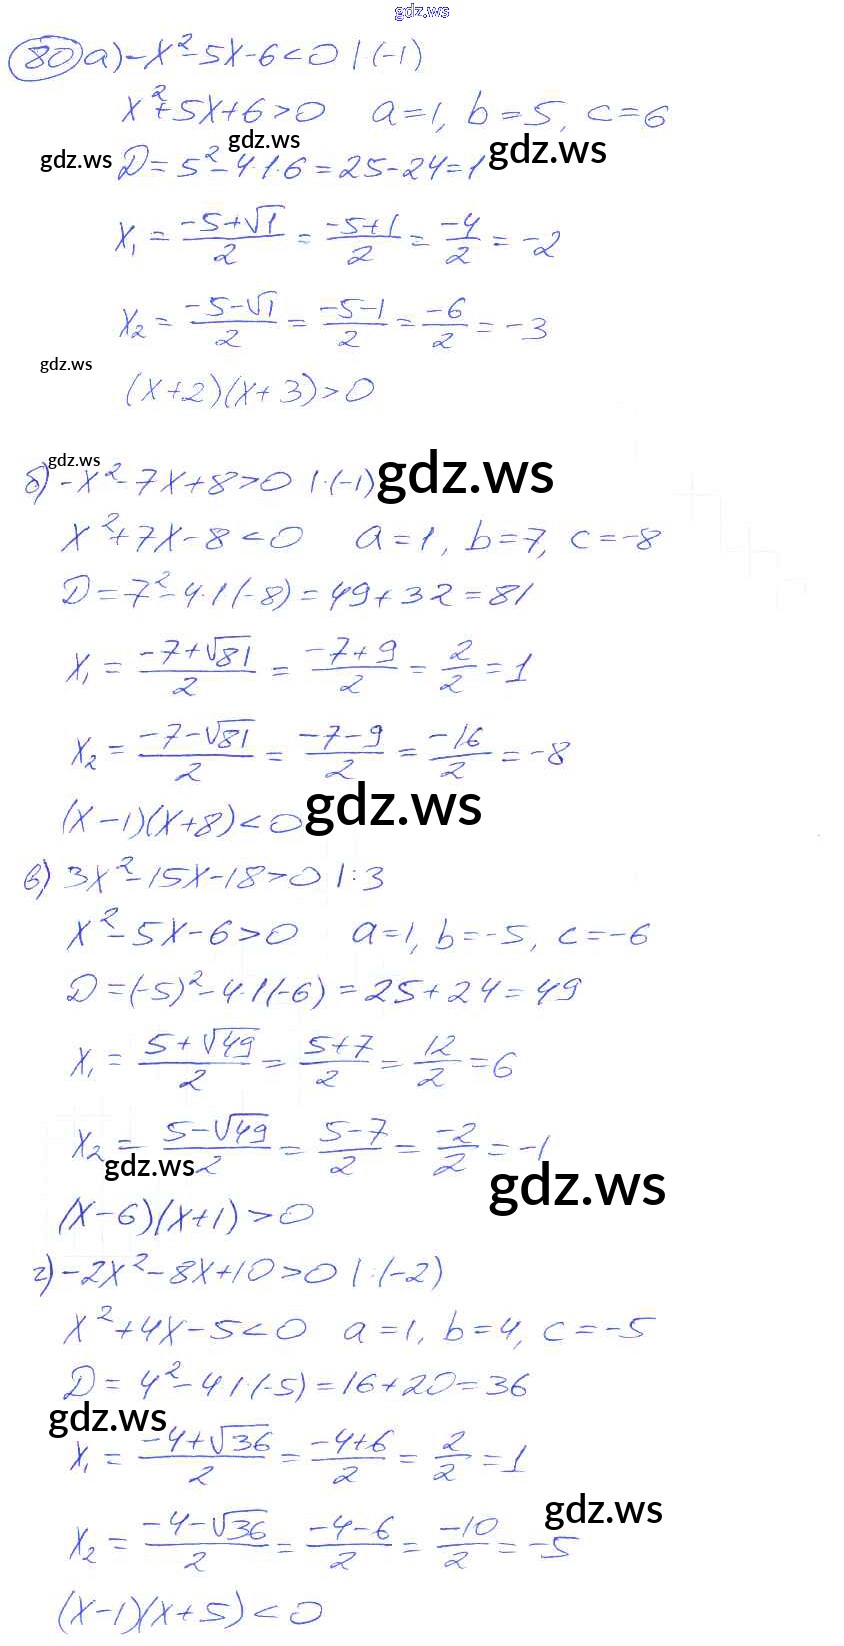 gdz.ws
80 а) -x²-5x-6<0 | (-1)
x²+5x+6>0 a=1, b=5, c=6
gdz.ws gdz.ws gdz.ws
D=5²-4·1·6=25-24=1
x₁ = (-5+√1)/2 = (-5+1)/2 = -4/2 = -2
x₂ = (-5-√1)/2 = (-5-1)/2 = -6/2 = -3
gdz.ws
(x+2)(x+3)>0
gdz.ws
б) -x²-7x+8>0 |·(-1) gdz.ws
x²+7x-8<0 a=1, b=7, c=-8
D=7²-4·1(-8)=49+32=81
x₁ = (-7+√81)/2 = (-7+9)/2 = 2/2 = 1
x₂ = (-7-√81)/2 = (-7-9)/2 = -16/2 = -8
(x-1)(x+8)<0 gdz.ws
в) 3x²-15x-18>0 |:3
x²-5x-6>0 a=1, b=-5, c=-6
D=(-5)²-4·1(-6)=25+24=49
x₁ = (5+√49)/2 = (5+7)/2 = 12/2 = 6
x₂ = (5-√49)/2 = (5-7)/2 = -2/2 = -1
gdz.ws gdz.ws
(x-6)(x+1)>0
г) -2x²-8x+10>0 |:(-2)
x²+4x-5<0 a=1, b=4, c=-5
D=4²-4·1·(-5)=16+20=36
gdz.ws
x₁ = (-4+√36)/2 = (-4+6)/2 = 2/2 = 1
gdz.ws
x₂ = (-4-√36)/2 = (-4-6)/2 = -10/2 = -5
(x-1)(x+5)<0